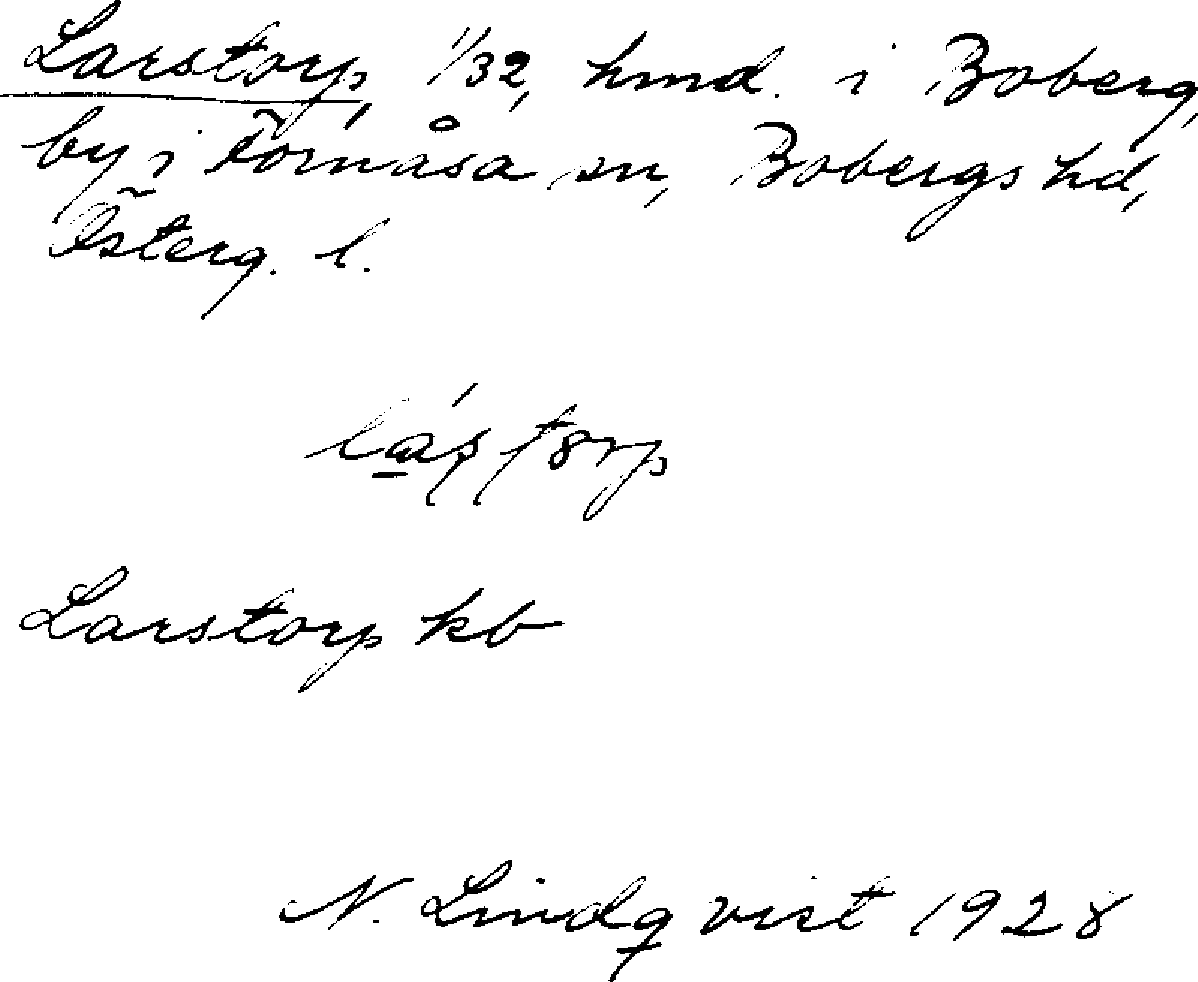 Larstorp, 1/32, hmd. i Boberg,
by i Fornåsa sn, Bobergs hd,
Österg. l.
Larstorp kb
N. Lindqvist 1928